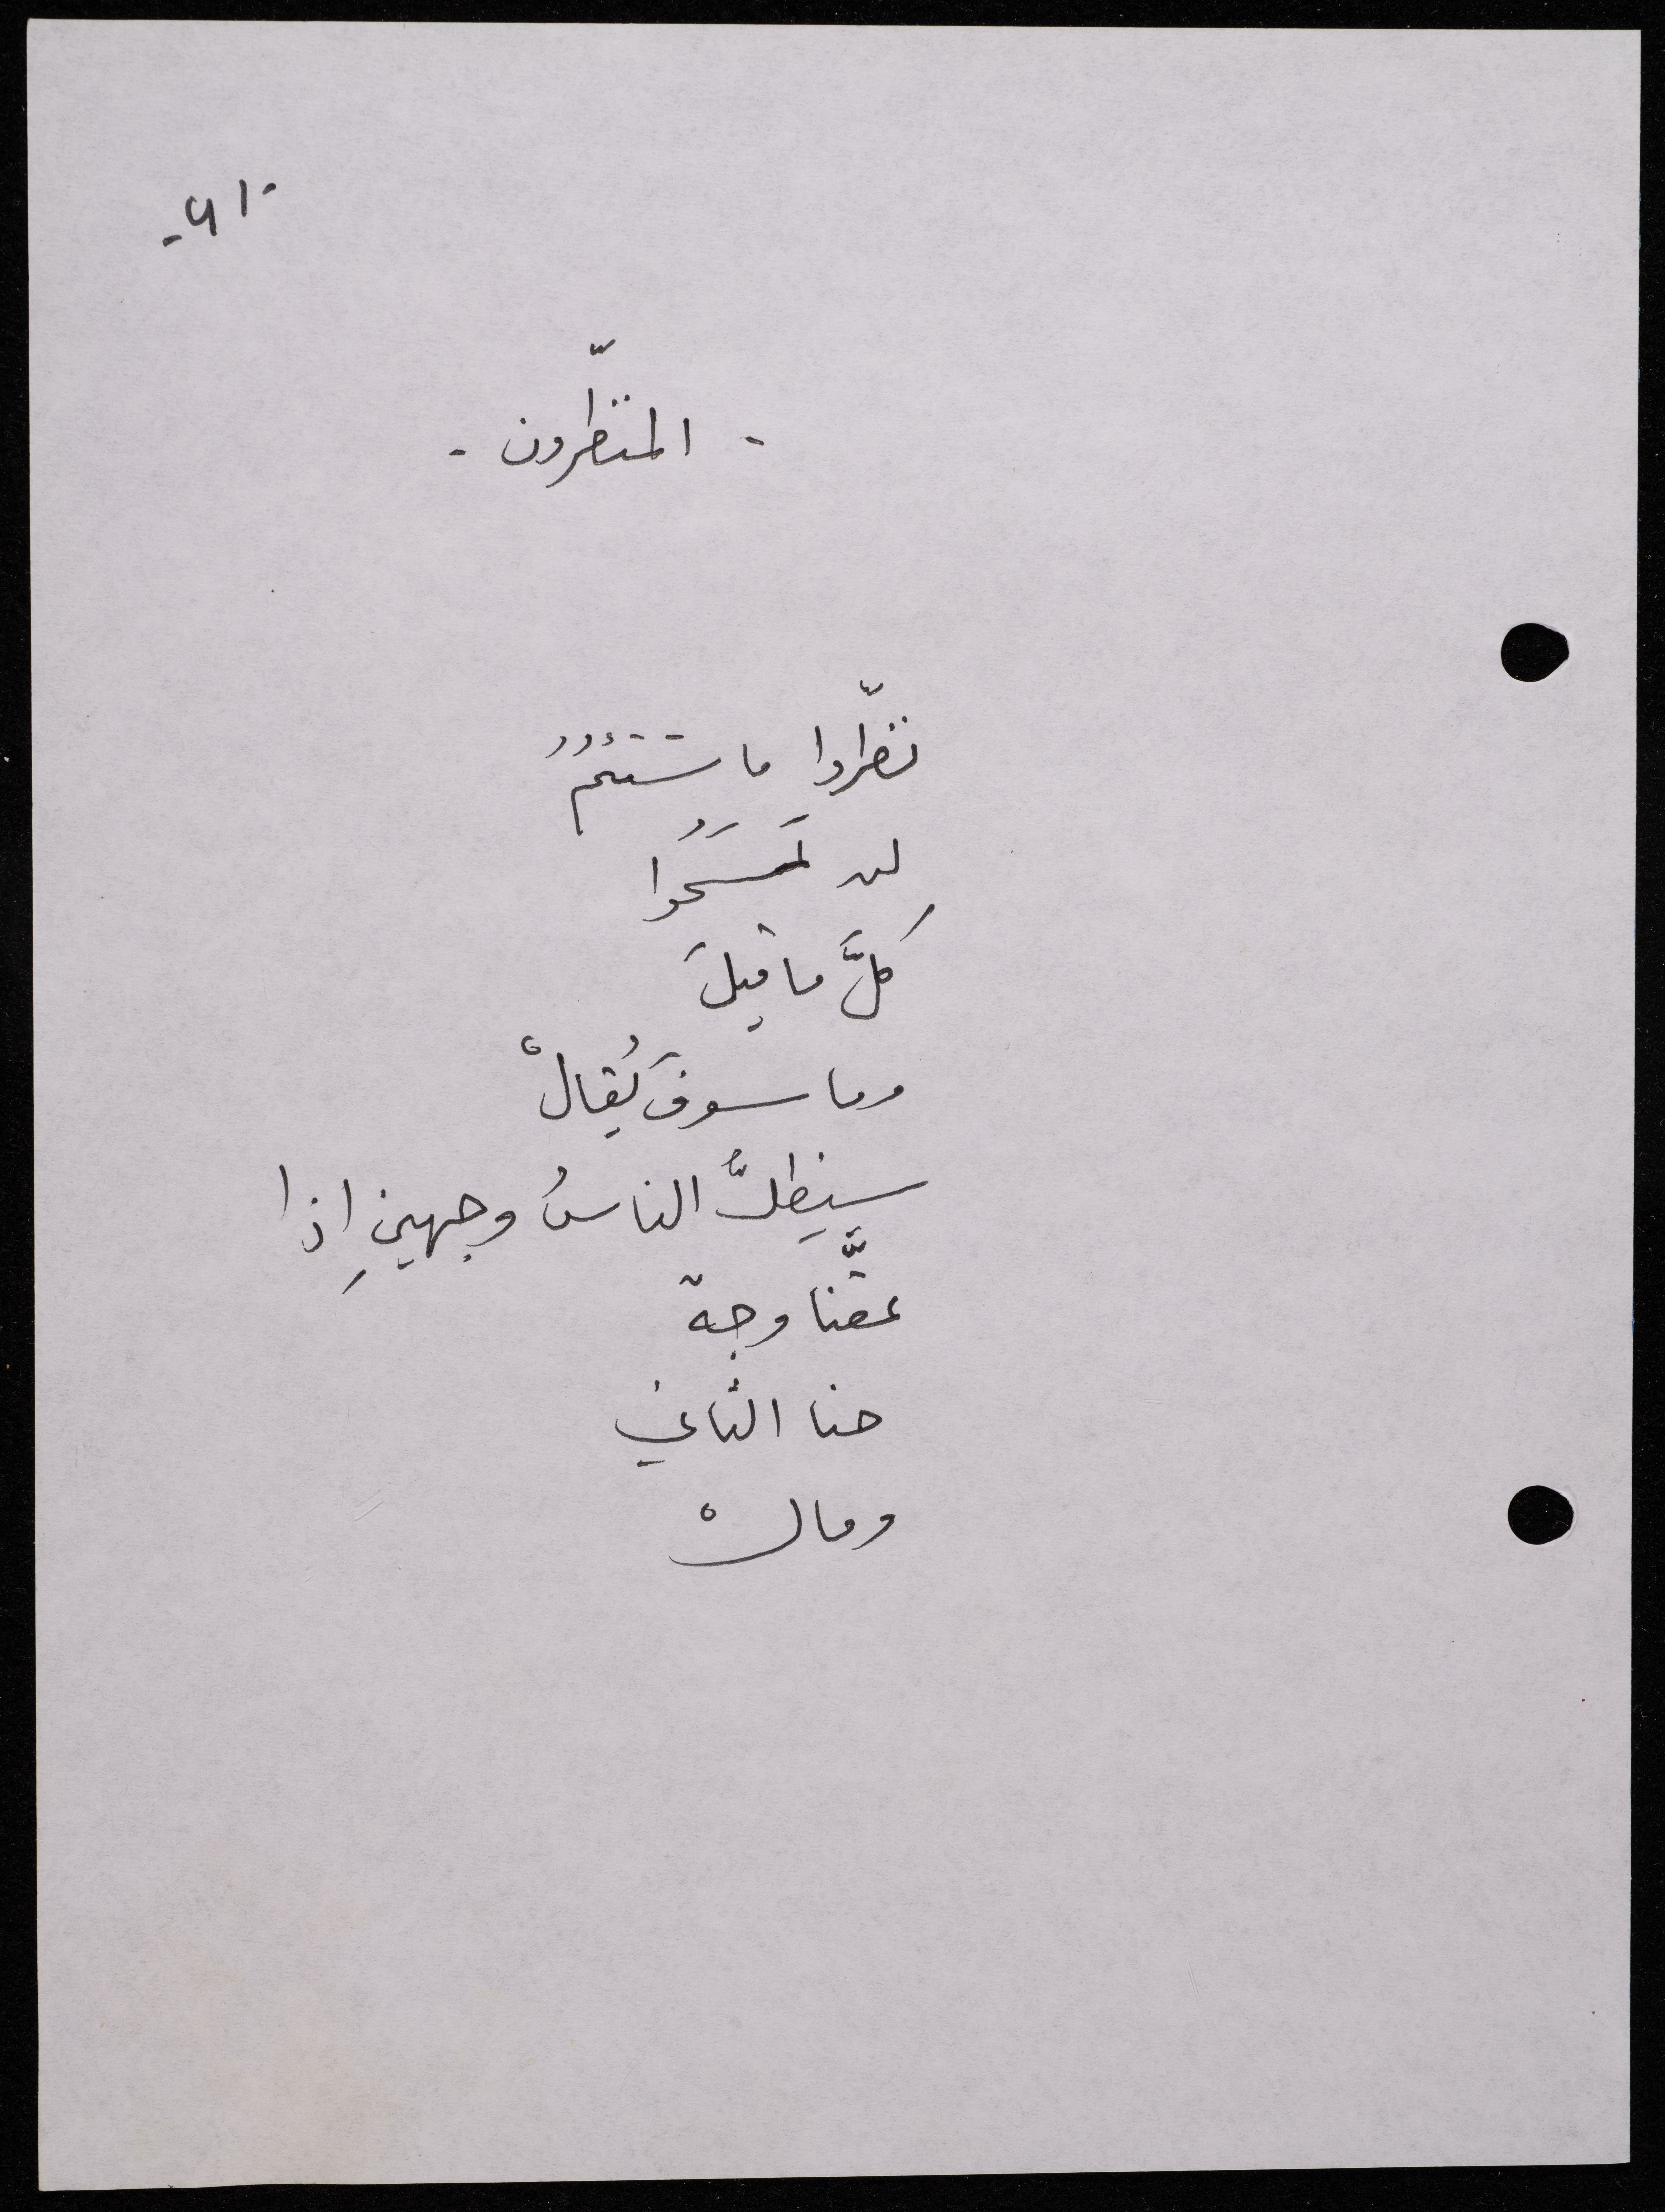 - ١٩ -
- المنظّرون -
نظّروا ما شئتمُ
لن تمسَحُوا
كلَّ ما قيلَ
وما سوفَ يُقالْ
سيظلُّ الناسُ وجهينِ إذا
عقَّنا وجهٌ
حنا الثاني
ومالْ